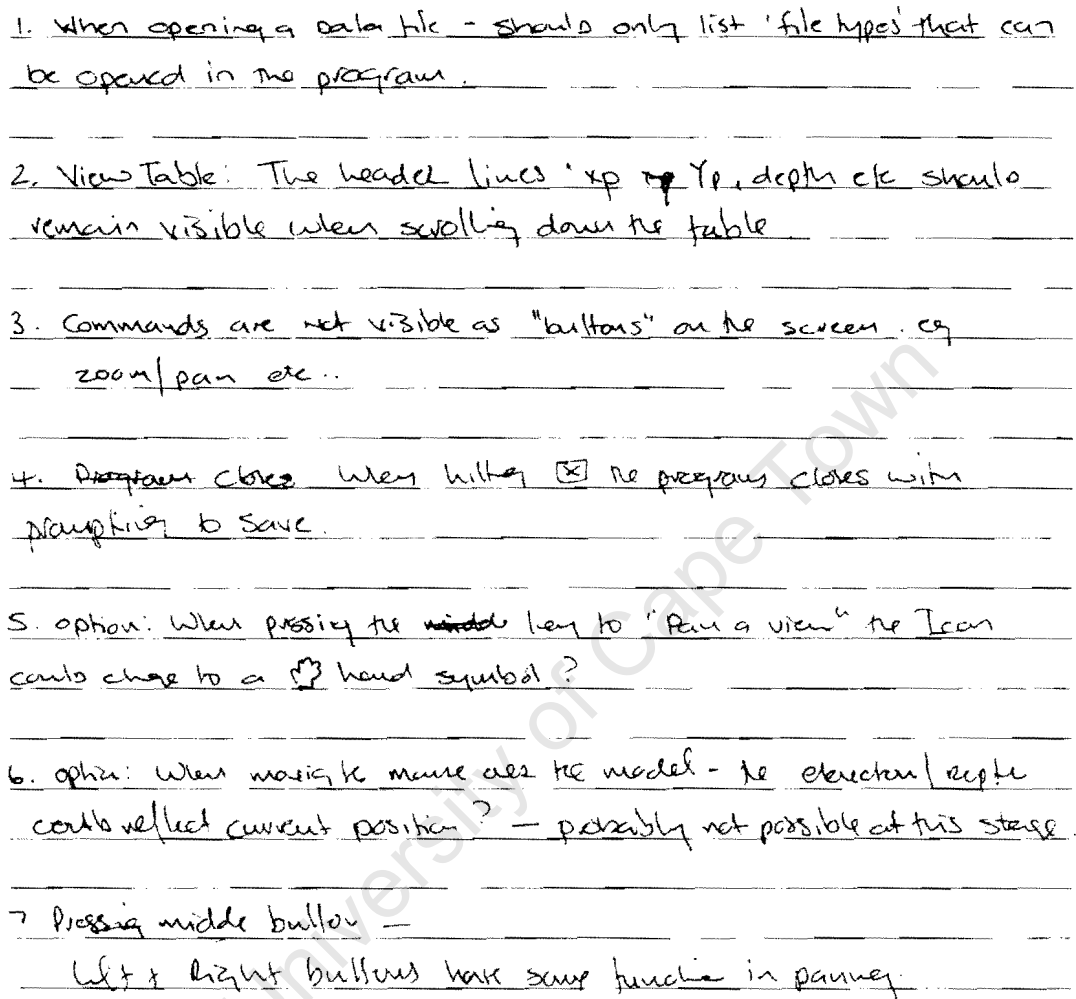 1. When opening a Data file - should only list 'file types' that can
be opened in the program.
2. View Table: The header lines 'xp yp Yp, depth etc should
remain visible when scrolling down the table
3. Commands are not visible as "buttons" on the screen. eg
zoom/pan etc..
4. Program closes When hitting ☒ the program closes with
prompting to save.
5. option: When pressing the middle key to "Pan a view" the Icon
could change to a hand symbol?
6. option: When moving the mouse over the model - the elevation/depth
could reflect current position? - probably not possible at this stage.
7 Pressing middle button -
Left + Right buttons have same function in panning.
University of Cape Town